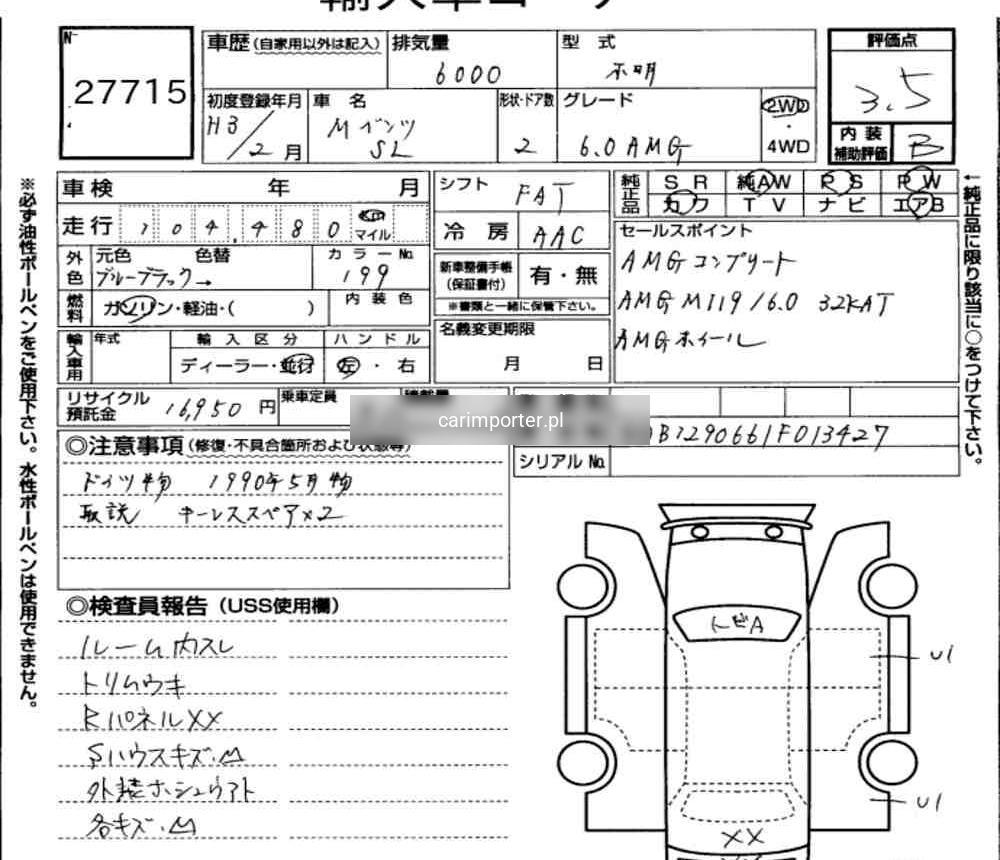 輸入車コーナー
No
27715
車歴 (自家用以外は記入)
排気量
6000
型式
不明
評価点
3.5
初度登録年月
H3/2月
車名
Mベンツ
SL
形状・ドア数
2
グレード
6.0 AMG
2WD
・
4WD
内装
補助評価
B
車検 年 月
シフト
FAT
純正品
SR 純AW PS PW
カワ TV ナビ エアB
走行 104,480 km マイル
冷房
AAC
セールスポイント
AMGコンプリート
AMG M119/6.0 32KAT
AMGホイール
外色
元色 色替
ブルーブラック→
カラーNo.
199
新車整備手帳
(保証書付)
有・無
※書類と一緒に保管下さい。
燃料
ガソリン・軽油・( )
内装色
名義変更期限
月 日
輸入車用
年式
輸入区分
ディーラー・並行
ハンドル
左・右
リサイクル
預託金
16,950円
乗車定員
carimporter.pl
DB1290661F013427
シリアルNo.
◎注意事項(修復・不具合箇所および状態等)
ドイツ物 1990年5月物
取説 キーレススペア×2
◎検査員報告(USS使用欄)
ルーム内スレ
トリムウキ
RパネルXX
Sハウスキズ.凹
各キズ.凹
トビA
U1
U1
XX
※必ず油性ボールペンをご使用下さい。水性ボールペンは使用できません。
←純正品に限り該当に○をつけて下さい。